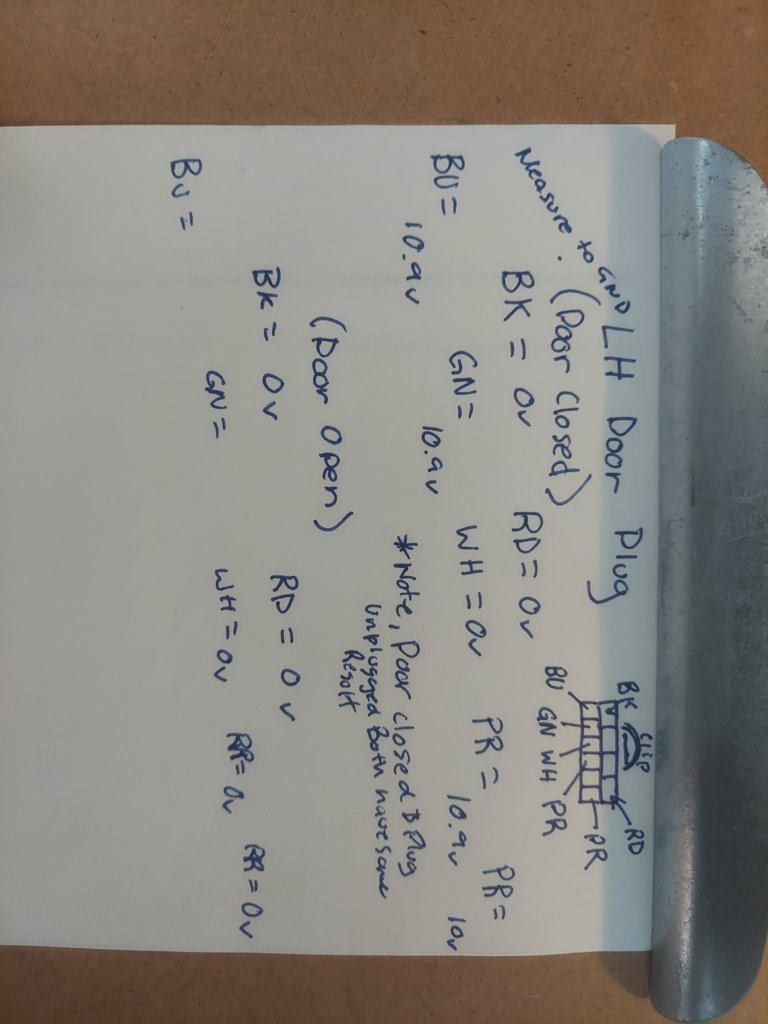 Measure to GND
LH Door Plug
(Door Closed)
BK CLIP RD
PR
BU GN WH PR
BK = 0v RD = 0v
BU = 10.9v GN = 10.9v WH = 0v PR = 10.9v PR = 10v
*Note, Door closed & Plug
Unplugged Both have same
Result
(Door Open)
BK = 0v RD = 0v
BU = GN = WH = 0v PR = 0v PR = 0v